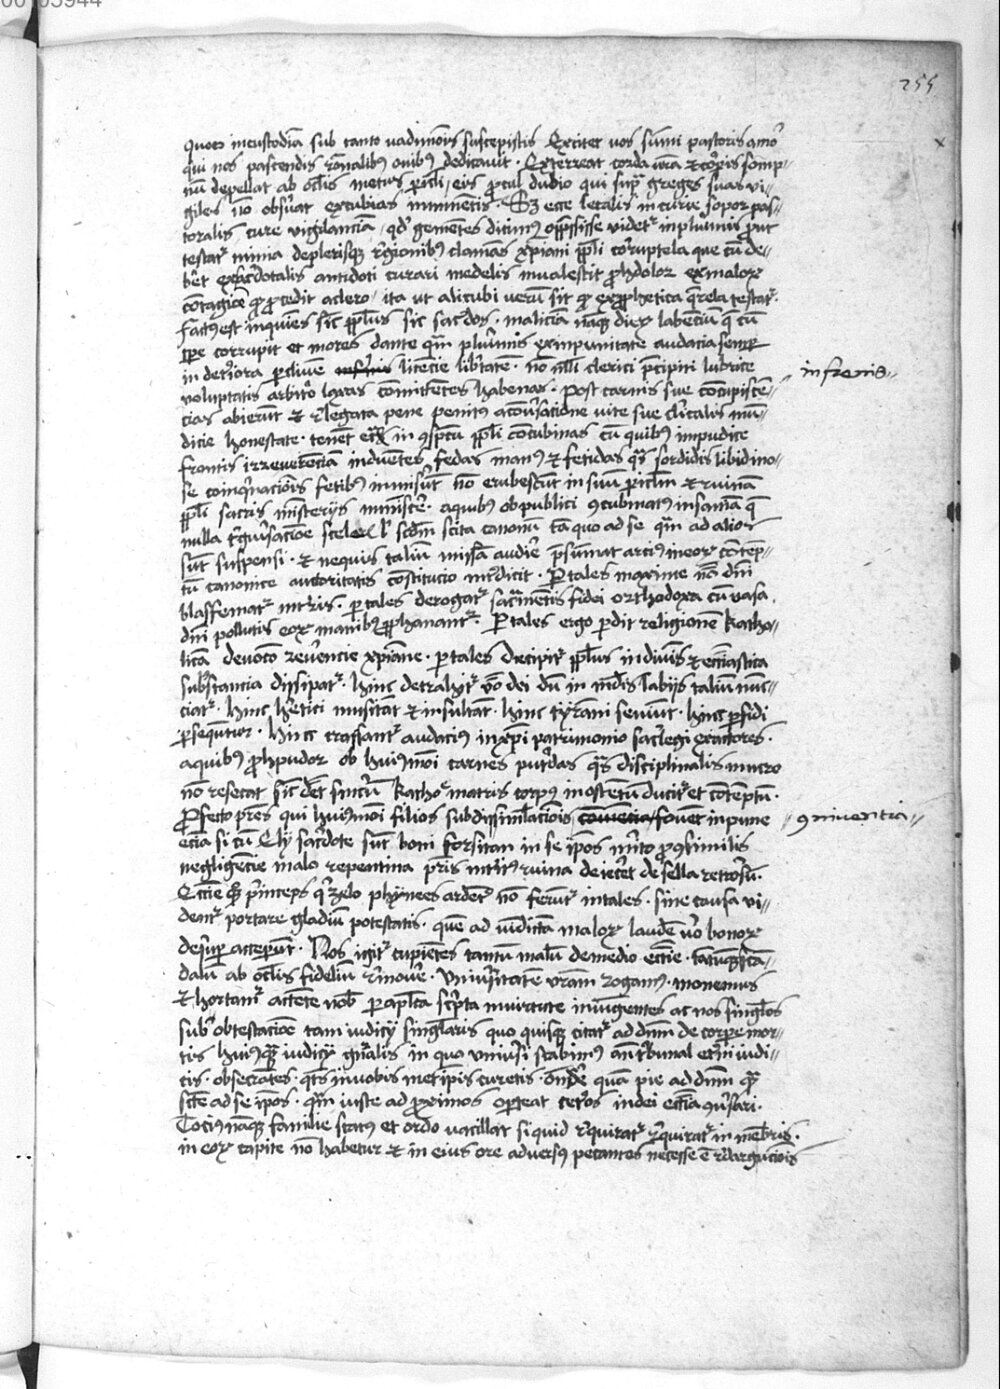 255
quos in custodiam sub tanto vadimonio suscepistis Excitet vos summi pastoris amor
qui nos pascendis ronalibus ovibus dedicavit. Exterreat corda vestra et corporis somp-
num depellat ab oculis metus periculi, eius procul dubio qui supra greges suas vi-
giles non observat excubias imminentis. Sed ecce letalis incurie sopor pas-
toralis cure vigilanciam, quod gementes dicimus oppressisse videtur in plurimis prout
testatur nimia de plerisque regionibus clamans xpiani populi corruptela que cum de-
beret ex sacerdotalis antidoti curari medelis invalescit prohdolor ex malorum
contagione que procedit a clero, ita ut alicubi verum sit quod ex prophetica querela testatur.
factus est inquiens sicut populus sic sacerdos. maliciam namque dierum labencium que cum
tempore corrupit et mores dante quam plurimis ex impunitate audacia semper
in deteriora proclive licencie libertatem. nonnulli clerici precipiti lubrice infrenis
voluptatis arbitrio laxas committentes habenas. post carnis sue concupiscen-
cias abierunt et relegata pene penitus a conversacione vite sue clericalis mun-
dicie honestate. tenent etiam in conspectu populi concubinas cum quibus impudice
frontis irreverenciam induentes fedas manus et fetidas quas sordidis libidino-
se coinquinacionis fetibus inmiserunt non erubescunt in suum periculum et ruinam
populi sacris misterijs inmiscere. a quibus ob publici concubinatus insaniam que
nulla tergiversacione scelus secundum scita canonum tam quo ad se quam ad alios
sunt suspensi. et nequis talium missam audire presumat arcius in eorum contemp-
tum canonice auctoritatis constitucio interdicit. Per tales maxime nomen domini
blasfematur in terris. per tales derogatur sacramentis fidei orthodoxa cum vasa
domini pollutis eorum manibus prophanantur. Per tales ergo perdit religionem katho-
licam devocio reverencie xpiane. per tales decipitur populus in divinis et ecclesiastica
substancia dissipatur. hinc detrahitur verbo dei dum inmundis labijs talium nun-
ciatur. hinc heretici mussitant et insultant. hinc tyranni seviunt. hinc perfidi
persequntur. hinc crassantur audacius in xpi patrimonio sacrilegi exactores.
a quibus prohpudor ob huiusmodi carnes putridas quas disciplinalis mucro
non resecat sicut decet sincerum katholice matris corpus in ostentum ducitur et contemptum.
Profecto patres qui huiusmodi filios sub dissimulacionis fovent inpune coniventia
etiam si cum Ely sacerdote sunt boni forsitan in se ipsos merito consimilis
negligencie malo repentina patris interitus ruina deiceret de sella retrorsum.
Ecclesie quoque princeps qui zelo phynees ardenter non feruntur in tales. sine causa vi-
dentur portare gladium potestatis. quem ad vindictam malorum laudem vero bonorum
desuper acceperunt. Nos igitur cupientes tantum malum de medio ecclesie. tantumque scan-
dalum ab oculis fidelium removere. Universitatem vestram rogamus. monemus
et hortamur attente vobis per apostolica scripta in virtute iniungentes ac nos singulos
sub obtestacione tam iudicij singularis quo quisque citatur ad dominum de corpore mor-
tis huius quam iudicij generalis in quo universi stabimus ante tribunal eterni iudi-
cis. obsecrantes. quatenus in vobis metipsis curetis. ondere quam pie ad dominum quam
sancte ad se ipsos. quam iuste ad proximos oporteat ceteros in dei ecclesia conversari.
Tocius namque familie status et ordo vacillat si quid requiratur requiratur in membris.
in eorum capite non habetur et in eius ore adversus peccantes necesse est redargucionis